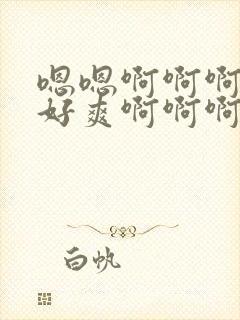 嗯嗯啊啊啊
好爽啊啊啊
白帆